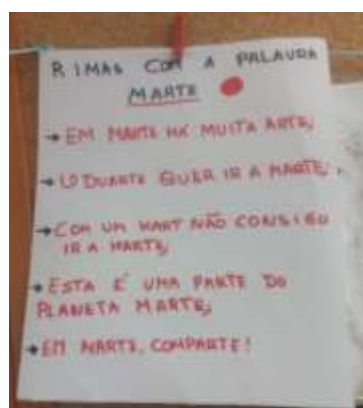 RIMAS COM A PALAVRA
MARTE
→ EM MARTE HÁ MUITA ARTE;
→ O DUARTE QUER IR A MARTE;
→ COM UM KART NÃO CONSIGO
IR A MARTE;
→ ESTA É UMA PARTE DO
PLANETA MARTE;
→ EM MARTE, COMPARTE!